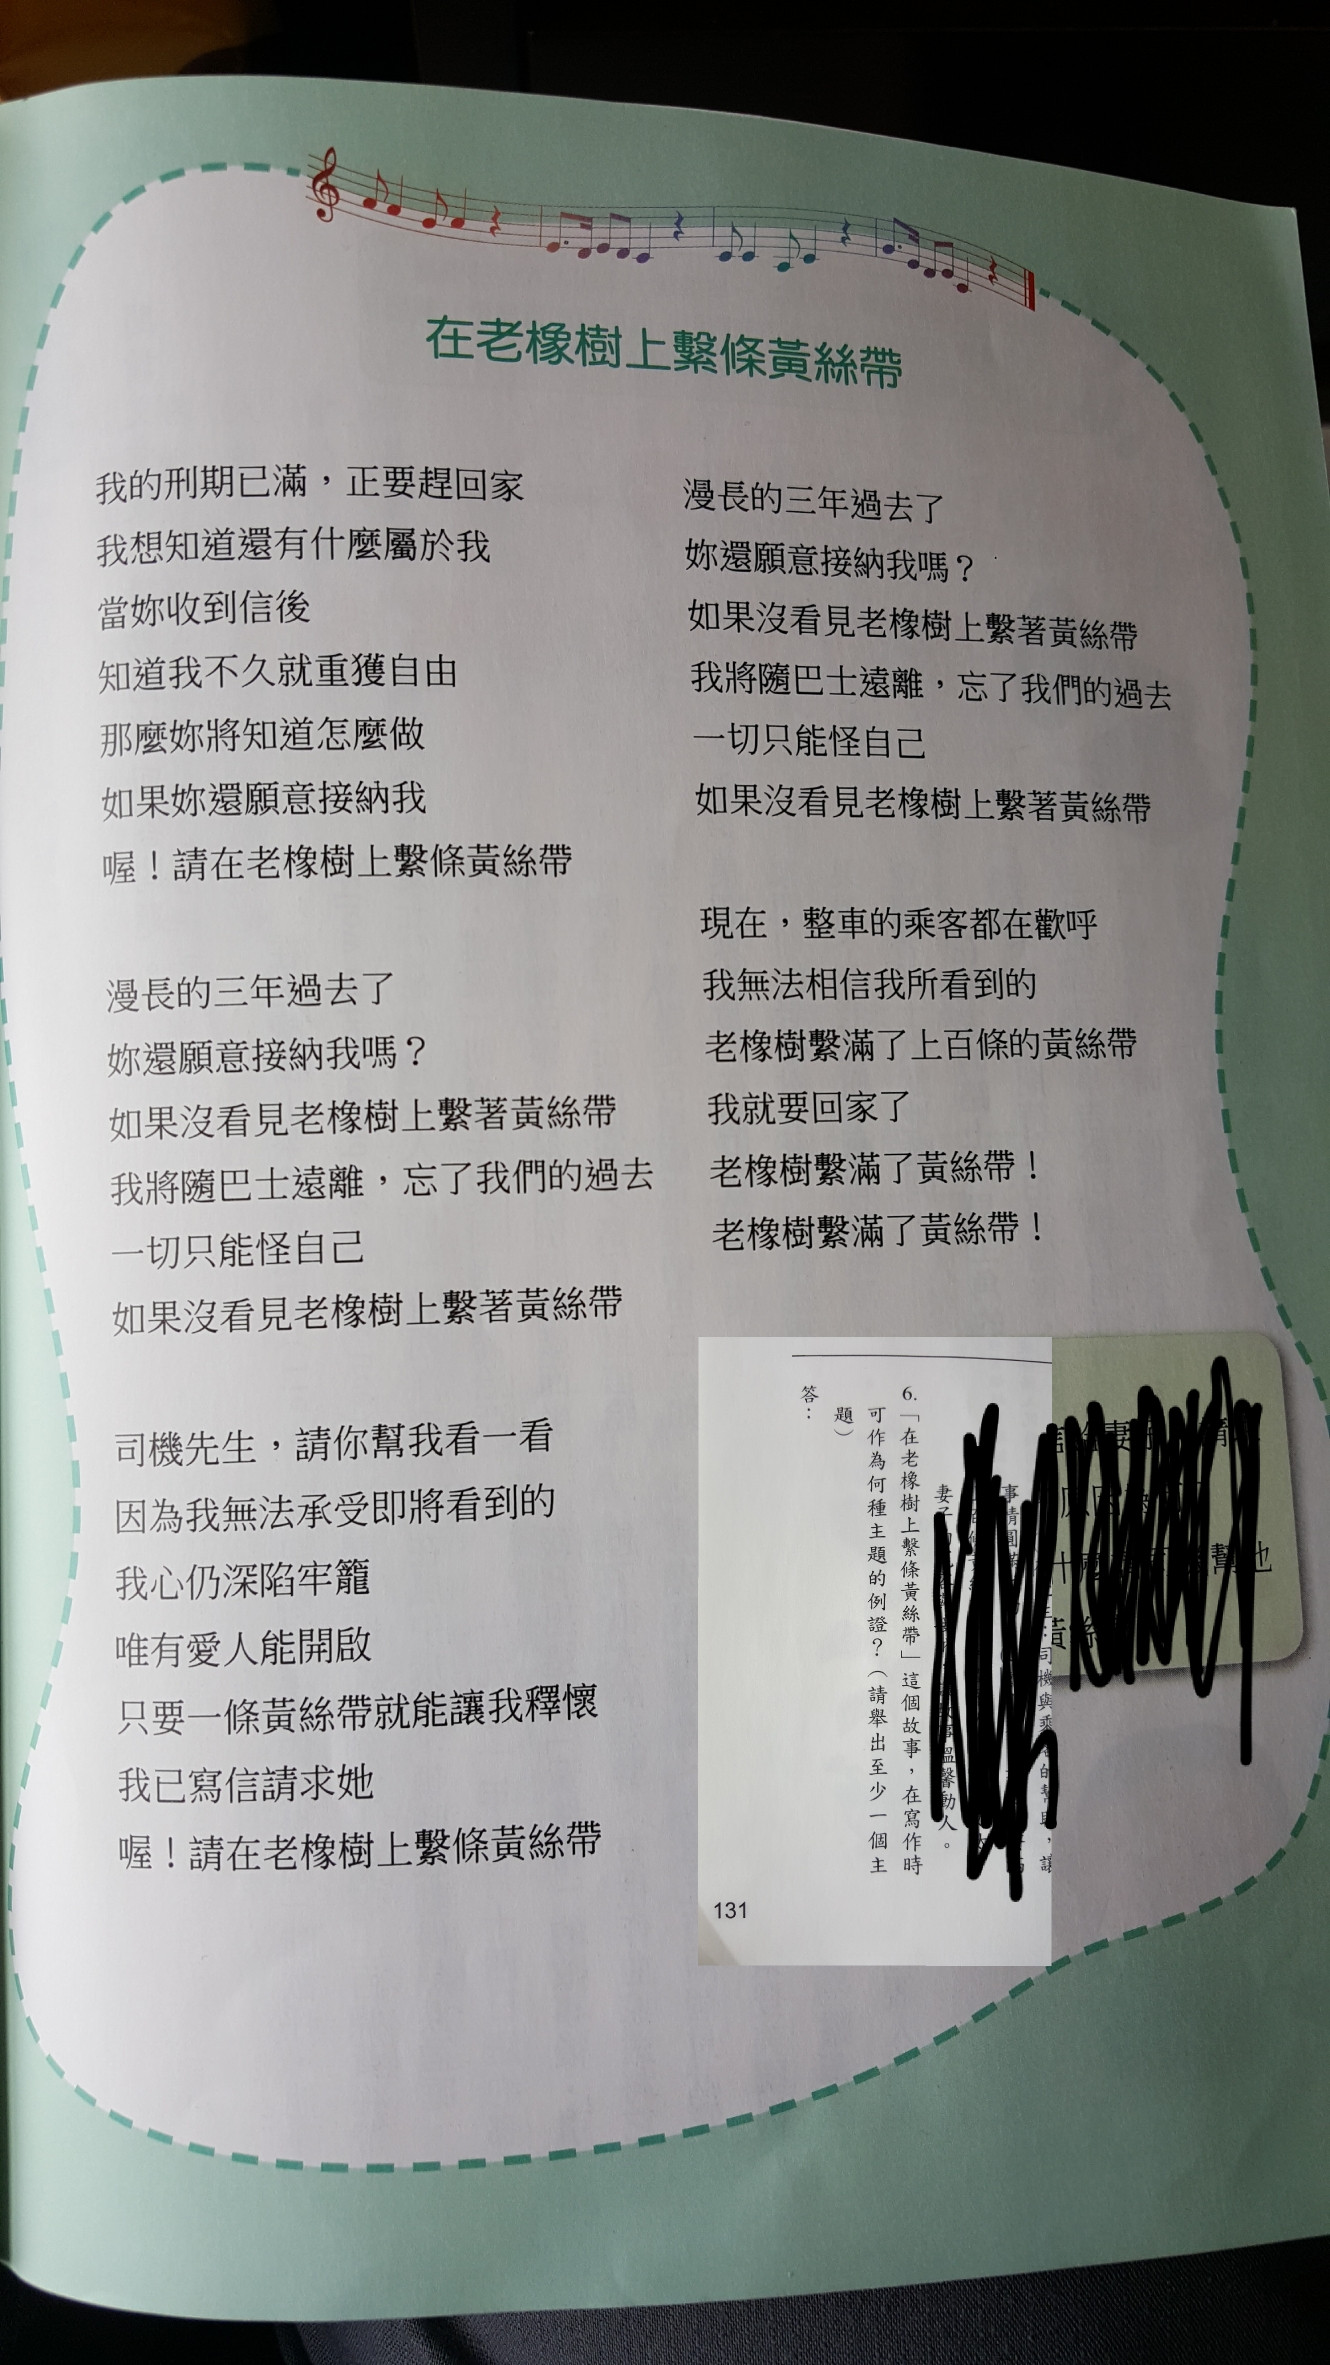 在老橡樹上繫條黃絲帶
我的刑期已滿，正要趕回家
我想知道還有什麼屬於我
當妳收到信後
知道我不久就重獲自由
那麼妳將知道怎麼做
如果妳還願意接納我
喔！請在老橡樹上繫條黃絲帶
漫長的三年過去了
妳還願意接納我嗎？
如果沒看見老橡樹上繫著黃絲帶
我將隨巴士遠離，忘了我們的過去
一切只能怪自己
如果沒看見老橡樹上繫著黃絲帶
司機先生，請你幫我看一看
因為我無法承受即將看到的
我心仍深陷牢籠
唯有愛人能開啟
只要一條黃絲帶就能讓我釋懷
我已寫信請求她
喔！請在老橡樹上繫條黃絲帶
漫長的三年過去了
妳還願意接納我嗎？
如果沒看見老橡樹上繫著黃絲帶
我將隨巴士遠離，忘了我們的過去
一切只能怪自己
如果沒看見老橡樹上繫著黃絲帶
現在，整車的乘客都在歡呼
我無法相信我所看到的
老橡樹繫滿了上百條的黃絲帶
我就要回家了
老橡樹繫滿了黃絲帶！
老橡樹繫滿了黃絲帶！
司機與乘
事情圓
妻子
溫馨動人。
6.「在老橡樹上繫條黃絲帶」這個故事，在寫作時
可作為何種主題的例證？（請舉出至少一個主
題）
答：
131